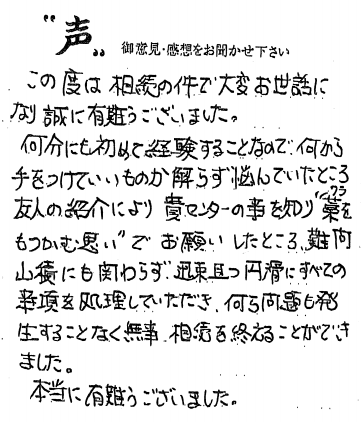 "声" 御意見・感想をお聞かせ下さい
この度は相続の件で大変お世話に
なり誠に有難うございました。
何分にも初めて経験することなので、何から
手をつけていいものか解らず悩んでいたところ
友人の紹介により貴センターの事を知り"藁(ワラ)を
もつかむ思い"でお願いしたところ、難問
山積にも関わらず、迅速且つ円滑にすべての
事項を処理していただき、何ら問題も発
生することなく無事、相続を終えることができ
ました。
本当に有難うございました。